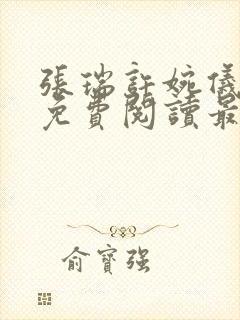 張瑞許婉儀
免費閱讀最
俞寶強